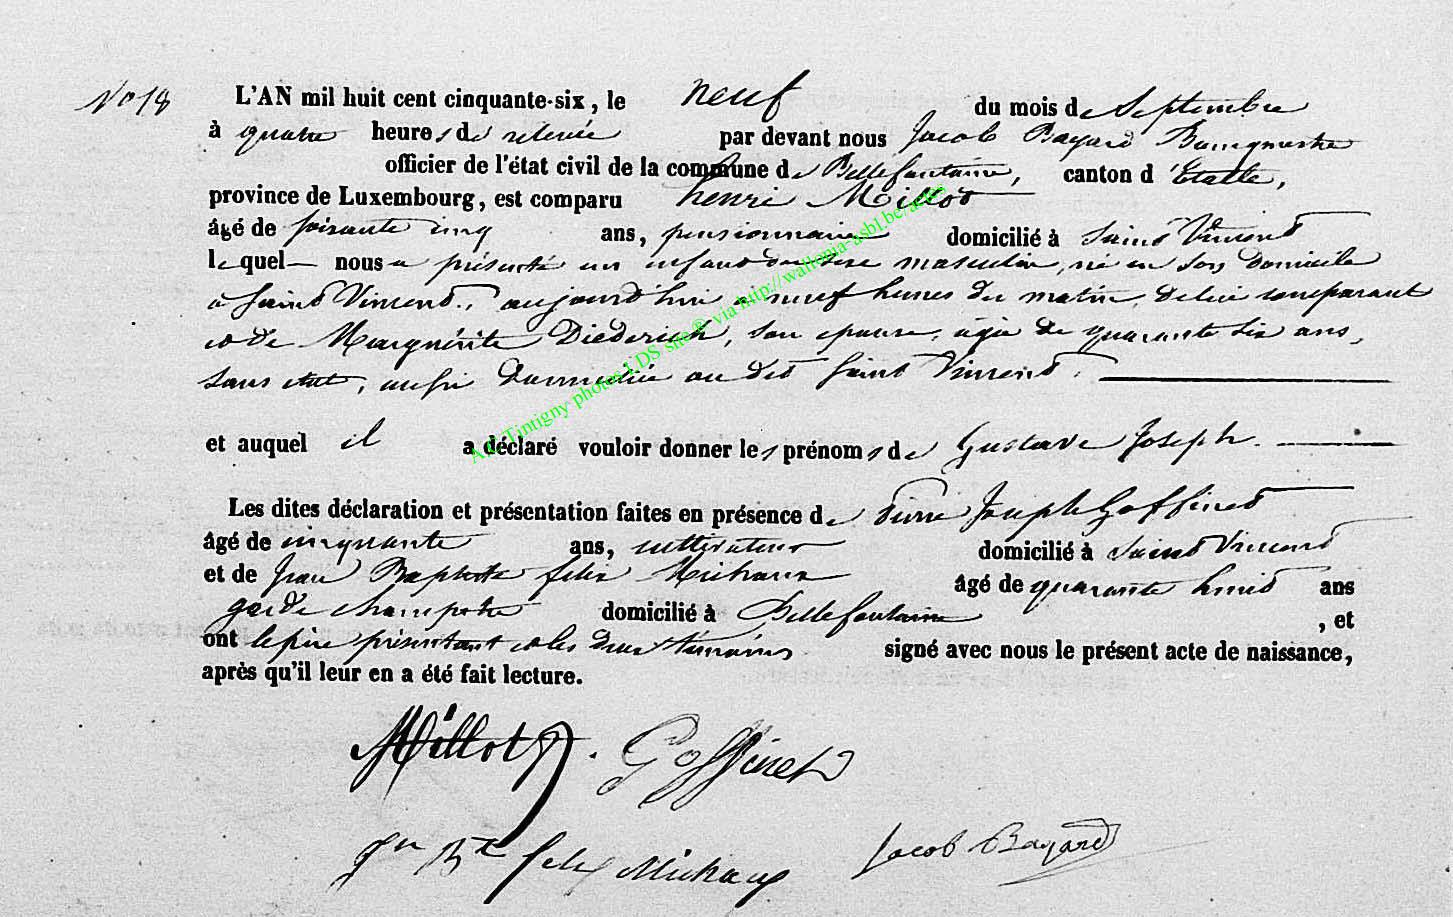 No 18
L'AN mil huit cent cinquante-six, le neuf du mois de Septembre
à quatre heures de relevée par devant nous Jacob Bayard Bourgmestre
officier de l'état civil de la commune de Bellefontaine, canton d'Etalle,
province de Luxembourg, est comparu henri Millot
âgé de soixante cinq ans, pensionnaire domicilié à Saint Vincent
lequel nous a présenté un enfant du sexe masculin, né en son domicile
à Saint Vincent, aujourd'hui à neuf heures du matin, de lui comparant
et de Marguérite Diederich, son épouse, agée de quarante six ans,
sans état, aussi domiciliée au dit Saint Vincent.
et auquel il a déclaré vouloir donner les prénoms de Gustave Joseph.
Les dites déclaration et présentation faites en présence de Pierre Joseph Goffinet
âgé de cinquante ans, cultivateur domicilié à Saint Vincent
et de Jean Baptiste felix Michaux âgé de quarante huit ans
garde champetre domicilié à Bellefontaine , et
ont le père présentant et les deux témoins signé avec nous le présent acte de naissance,
après qu'il leur en a été fait lecture.
Millot. Goffinet
Jn Bte felix Michaux Jacob Bayard
Tintigny photos LDS site® via http://wallonia-asbl.be/